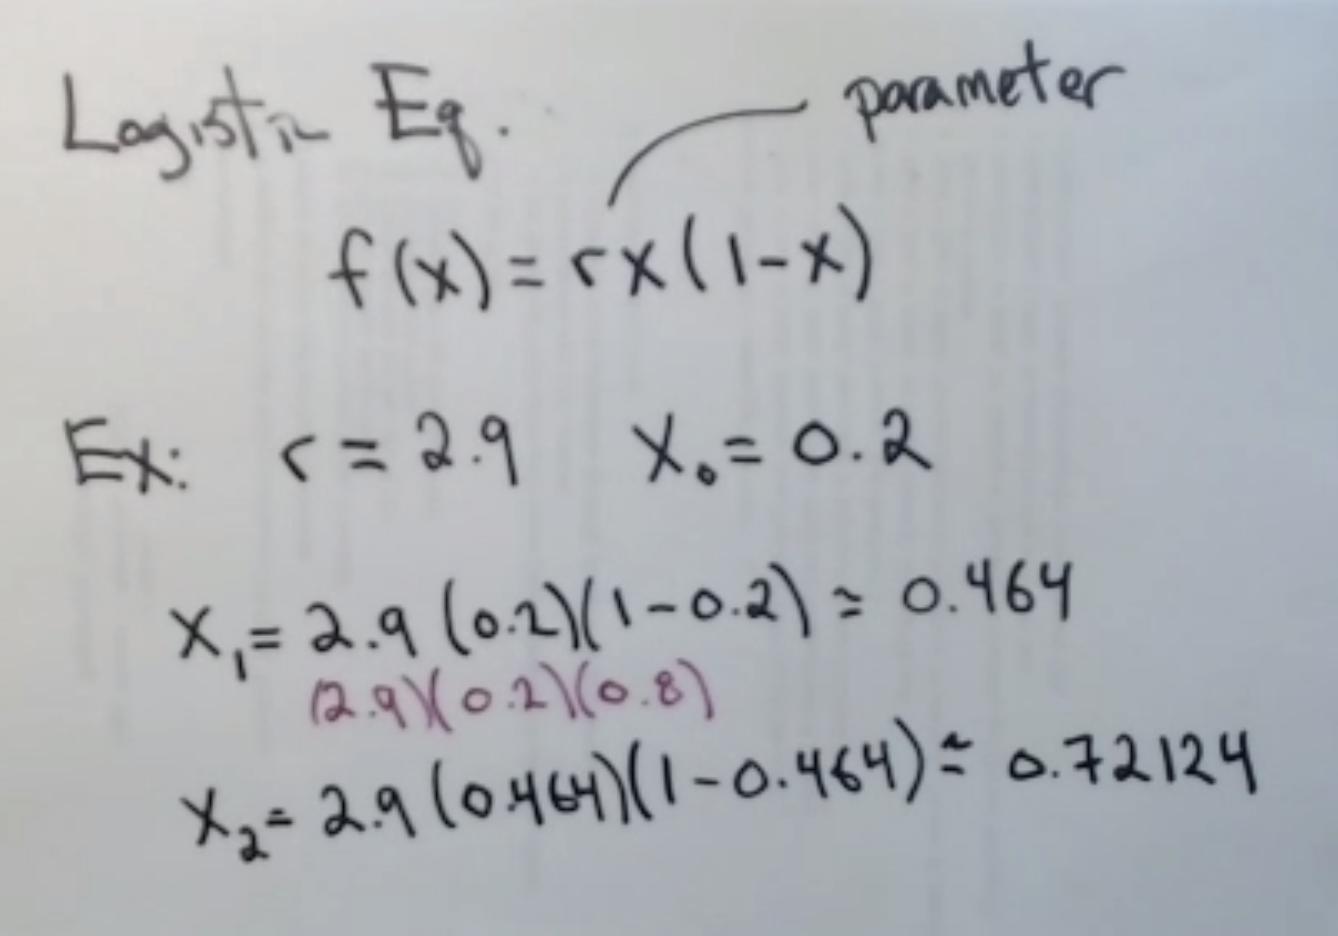 Logistic Eq.
parameter
f(x) = rx(1-x)
Ex: r = 2.9 X₀ = 0.2
X₁ = 2.9 (0.2)(1-0.2) = 0.464
(2.9)(0.2)(0.8)
X₂ = 2.9 (0.464)(1-0.464) ≈ 0.72124